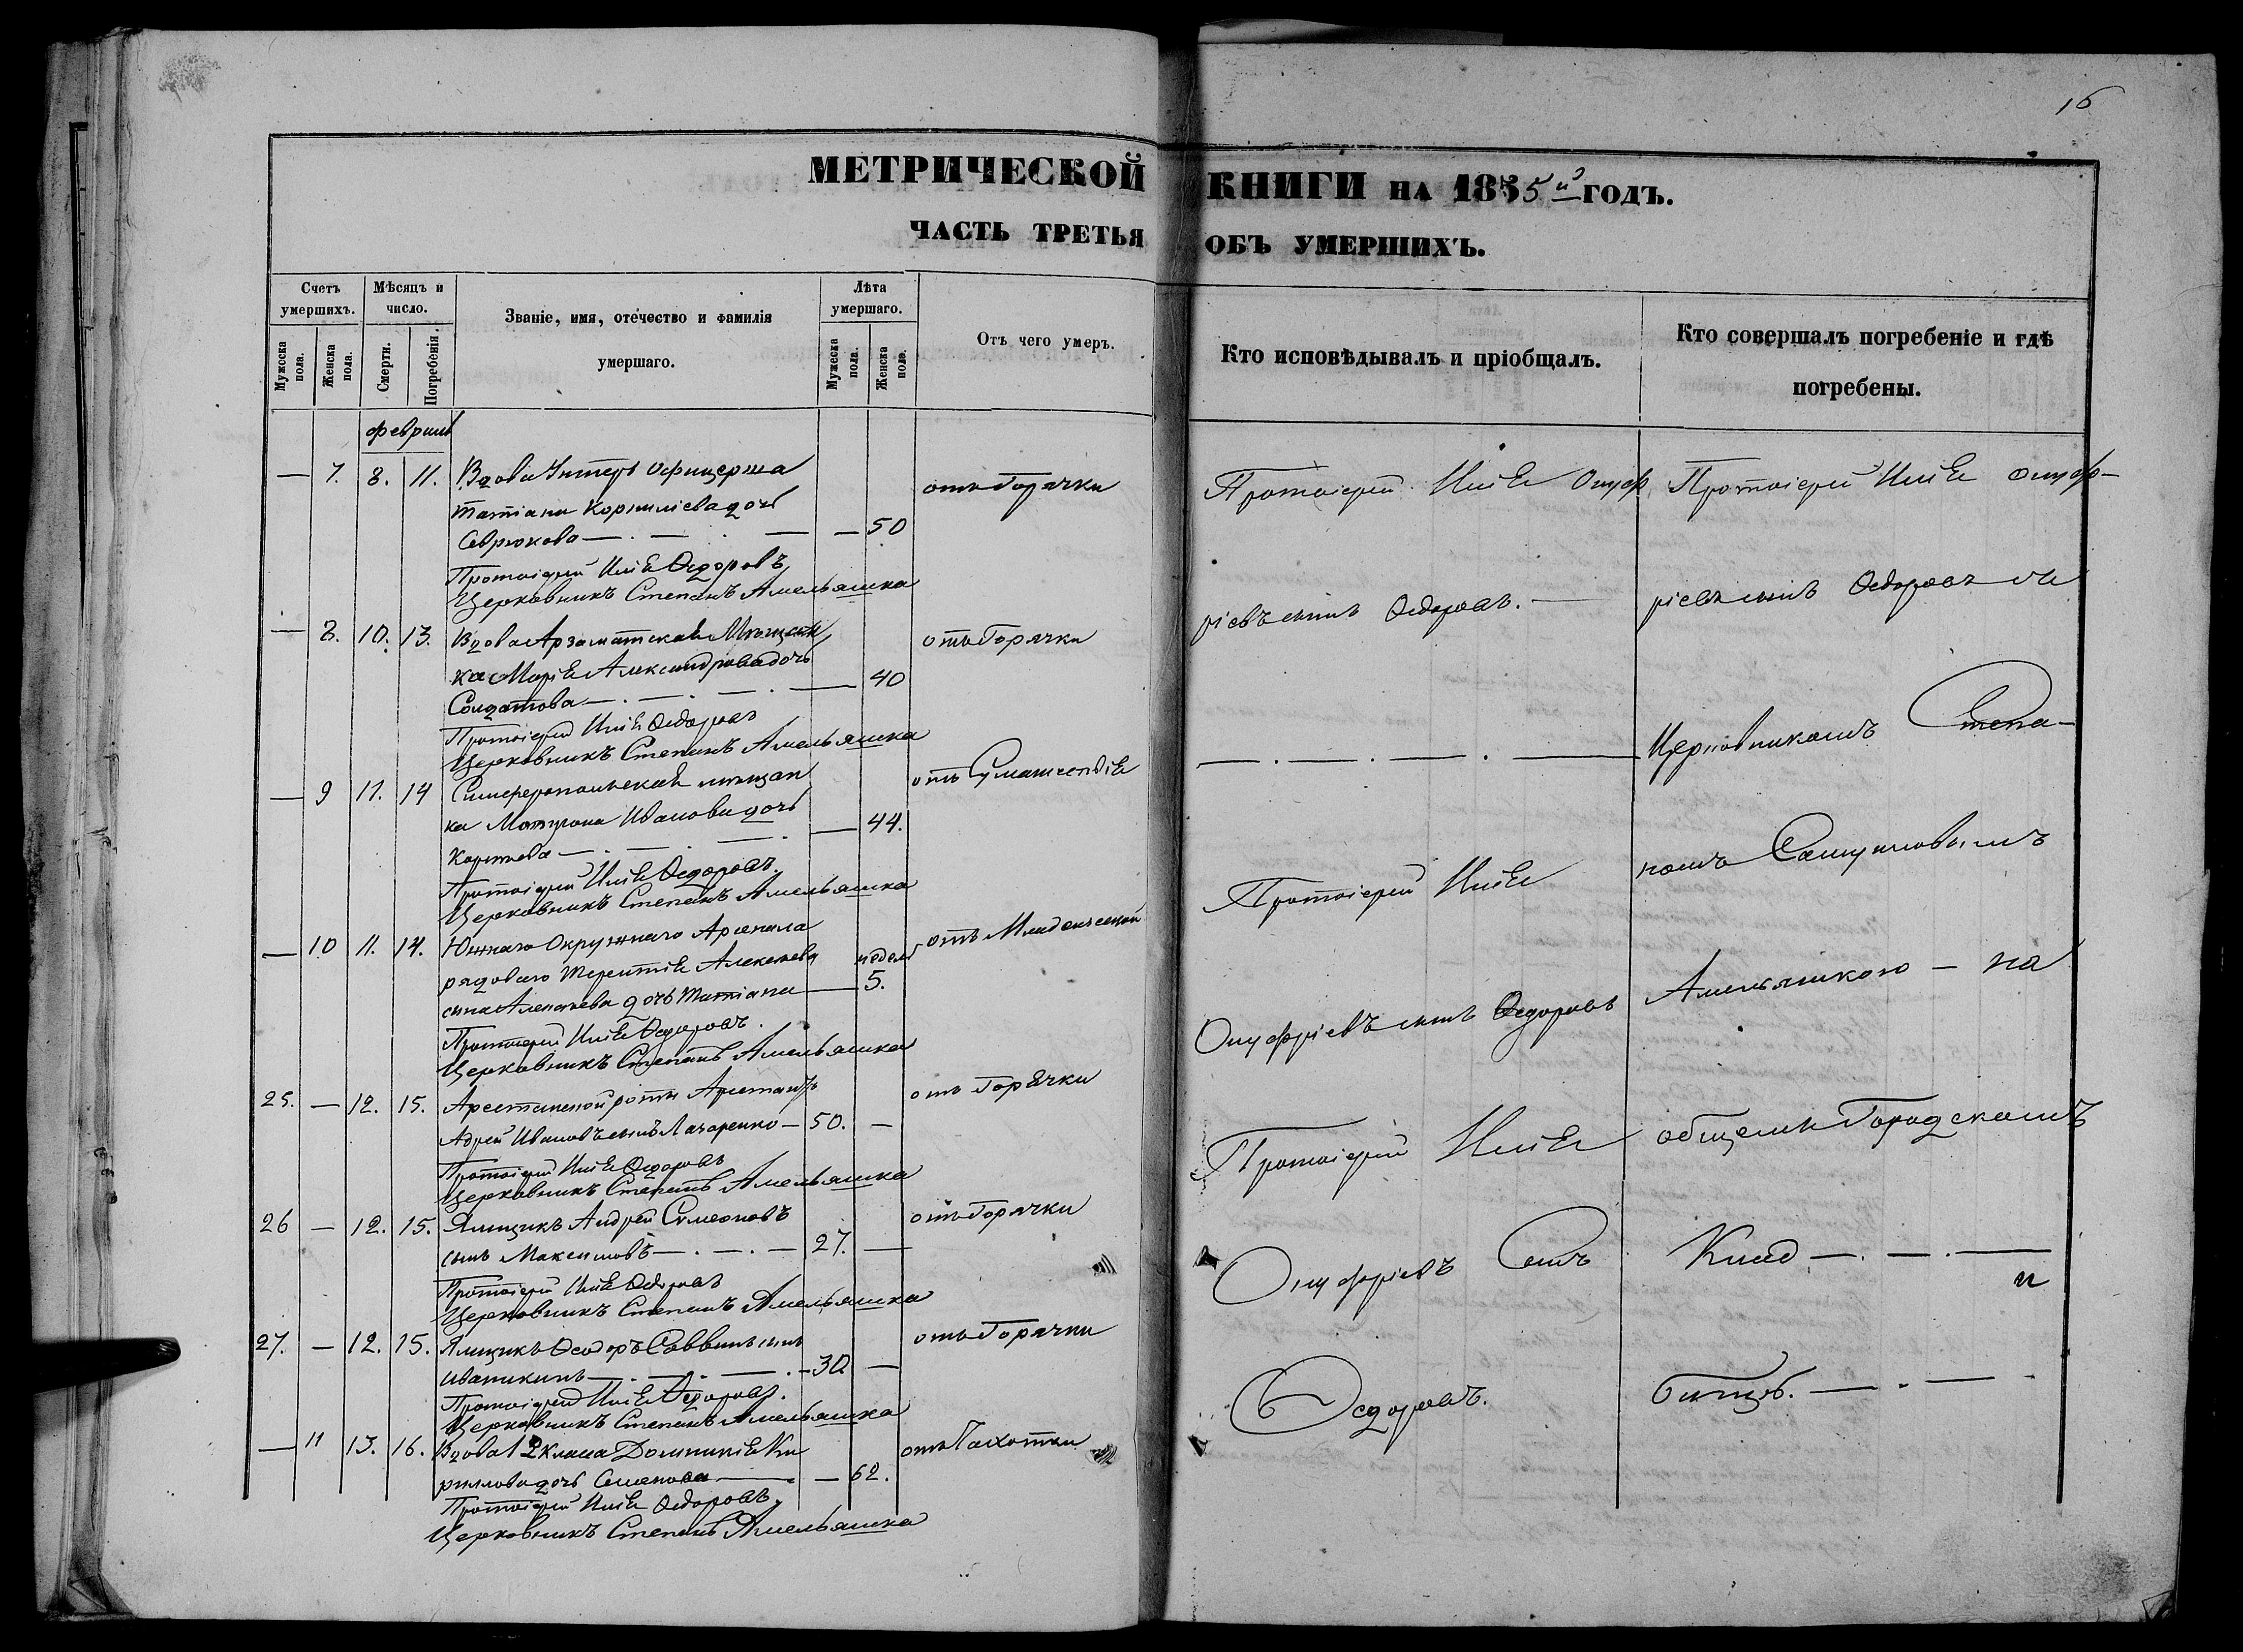 16
МЕТРИЧЕСКОЙ КНИГИ НА 1855й ГОДЪ.
ЧАСТЬ ТРЕТЬЯ ОБЪ УМЕРШИХЪ.
Счетъ умершихъ.
Мужеска пола.
Женска пола.
Мѣсяцъ и число.
Смерти.
Погребенія.
Званіе, имя, отечество и фамилія
умершаго.
Лѣта умершаго.
Мужеска пола.
Женска пола.
Отъ чего умеръ.
Кто исповѣдывалъ и пріобщалъ.
Кто совершалъ погребеніе и гдѣ
погребены.
февраль
— 7. 8. 11. Вдова Унтеръ офицерша отъ Горячки
татіана Корниліева дочь
Севрюкова — . — . — — 50
Протоіерей Илія Ѳедоровъ
Церковникъ Степанъ Амельяшка
— 8. 10. 13. Вдова Арзаматская Мѣщан отъ Горячки
ка Марія Александрова дочь
Солдатова — . — . — . — 40
Протоіерей Илія Ѳедоровъ
Церковникъ Степанъ Амельяшка
— 9 11. 14 Симферопольская мѣщан отъ Сумашествія
ка Матрона Иванова дочь
— 44.
Протоіерей Илія Ѳедоровъ
Церковникъ Степанъ Амельяшка
— 10 11. 14. Южнаго Окружнаго Арсенала отъ Младенческой
рядоваго Терентія Алексѣева недель
сына дочь Татіана — 5.
Протоіерей Илія Ѳедоровъ.
Церковникъ Степанъ Амельяшка
25. — 12. 15. Арестанской роты Арестантъ отъ Горячки
Иановъ сынъ Лазаренко — 50. —
Протоіерей Илія Ѳедоровъ
Церковникъ Степанъ Амельяшка
26 — 12. 15. Ямщикъ Андрей Симеоновъ отъ Горячки
сынъ Максимовъ — . — . — 27. —
Протоіерей Илія Ѳедоровъ
Церковникъ Степанъ Амельяшка
27. — 12. 15. Ямщикъ Ѳеодоръ Саввинъ сынъ отъ Горячки
Иваникинъ — . — . — . — 30 —
Протоіерей Илія Ѳедоровъ.
Церковникъ Степанъ Амельяшка
— 11 13. 16. Вдова 12 класа Домникія Ки отъ Чахотки
риллова дочь Семенова — — 62.
Протоіерей Илія Ѳедоровъ.
Церковникъ Степанъ Амельяшка
Протоіерей Илія Онуф
ріевъ сынъ Ѳедоровъ. —
— . — . — . —
Протоіерей Илія
Онуфріевъ сынъ Ѳедоровъ
Протоіерей Илія
Онуфріевъ Сынъ
Ѳедоровъ.
Протоіерей Илія Онуф-
ріевъ сынъ Ѳедоровъ съ
Церковникомъ Степа-
номъ Самуиловымъ
Амельяшкою — на
общемъ Городскомъ
Клад — . — . —
и
бищѣ. — . — .